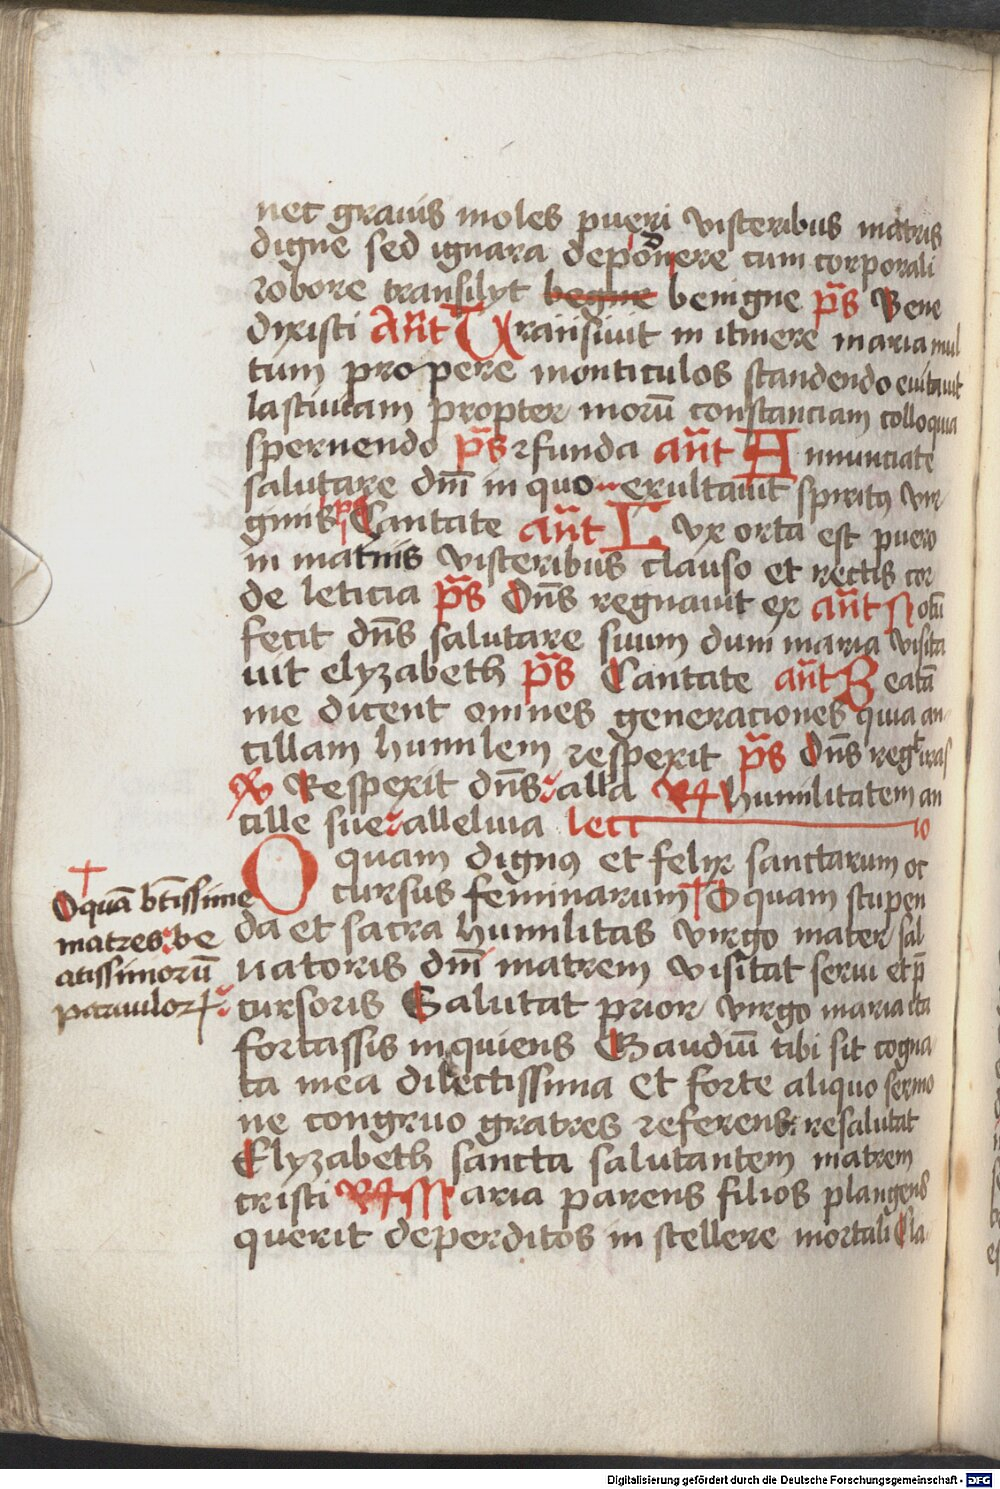 net grauis moles pueri visteribus matris
digne sed ignara deponere cum corporali
robore transilyt begne benigne p̄s Bene
dixisti Añt Transiuit in itinere maria mul
tum propere monticulos scandendo euitauit
lasciuiam propter morū constanciam colloquia
spernendo p̄s Efunda añt Annunciate
salutare dm̄ in quo exultauit spiritꝯ vir
ginis ps Cantate añt Lux orta est puero
in matris visteribus clauso et rectis cor
de leticia p̄s Dn̄s regnauit ex añt Notū
fecit dn̄s salutare suum dum maria visita
uit elyzabeth p̄s Cantate añt Beatā
me dicent omnes generaciones quia an
cillam humilem respexit p̄s Dn̄s regt iras
℣ Respexit dn̄s alla ℟ humilitatem an
cille sue alleluia lect io
O quam dignꝯ et felyx sanctarum oc
cursus feminarum † O quam stupen
da et sacra humilitas virgo mater sal
uatoris dm̄ matrem visitat serui et p̄
cursoris Salutat prior virgo maria ita
fortassis inquiens Gaudiū tibi sit cogna
ta mea dilectissima et forte aliquo sermo
ne congruo grates referens resalutat
Elyzabeth sancta salutantem matrem
cristi ℟ Maria parens filios plangens
querit deperditos in scellere mortali Cla
†
O quā bt̄issime
matres be
atissimorū
paruulorꝝ
Digitalisierung gefördert durch die Deutsche Forschungsgemeinschaft - DFG